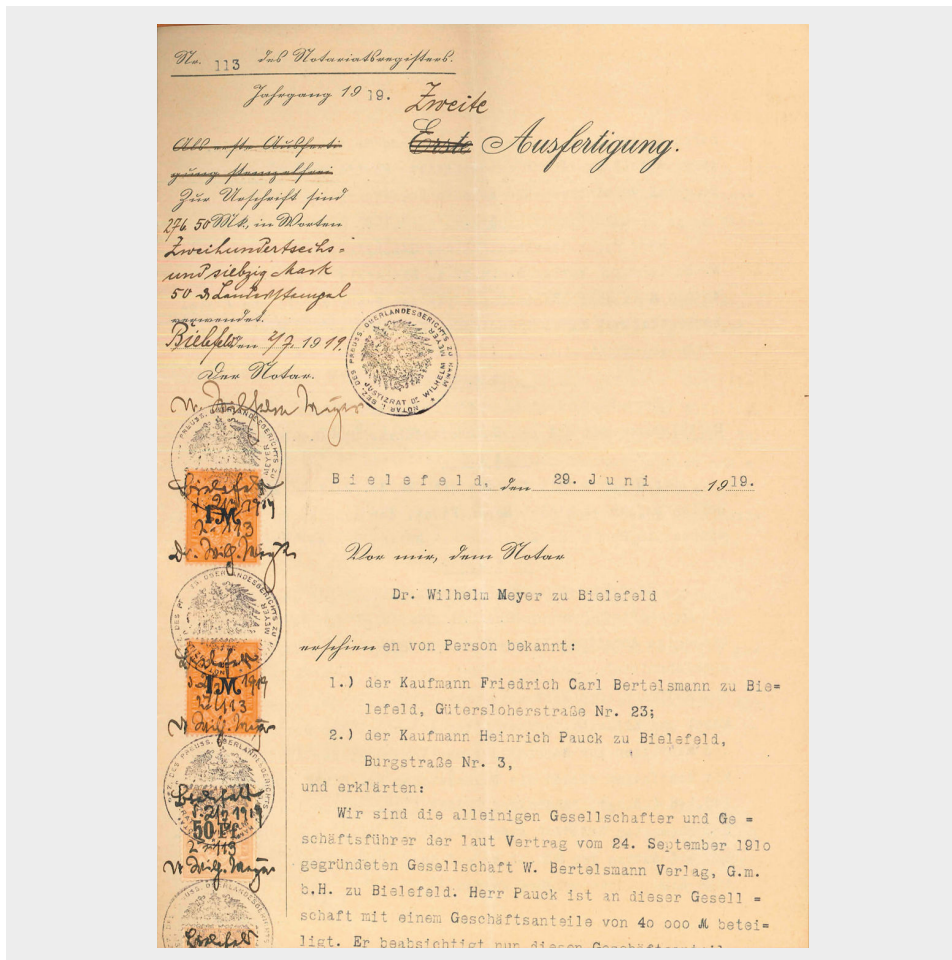 Nr. 113 des Notariatsregisters.
Jahrgang 1919.
Zweite
Erste Ausfertigung.
Als erste Ausferti
gung stempelfrei
Zur Urschrift sind
276 50 Mk., in Worten
Zweihundertsechs-
und siebzig Mark
50 Landesstempel
verwendet.
Bielefeld, den 2/7. 1919.
Der Notar.
Dr. Wilhelm Meyer
NOTAR I. BEZ. DES PREUSS. OBERLANDESGERICHTS ZU HAMM
JUSTIZRAT DR WILHELM MEYER
Bielefeld, den 29. Juni 1919.
Bielefeld
1 M
2 113
Dr. Wilh. Meyer
Vor mir, dem Notar
Dr. Wilhelm Meyer zu Bielefeld
erschienen von Person bekannt:
1.) der Kaufmann Friedrich Carl Bertelsmann zu Bie=
lefeld, Gütersloherstraße Nr. 23;
2.) der Kaufmann Heinrich Pauck zu Bielefeld,
Burgstraße Nr. 3,
und erklärten:
Wir sind die alleinigen Gesellschafter und Ge =
schäftsführer der laut Vertrag vom 24. September 1910
gegründeten Gesellschaft W. Bertelsmann Verlag, G.m.
b.H. zu Bielefeld. Herr Pauck ist an dieser Gesell =
schaft mit einem Geschäftsanteile von 40 000 M betei=
ligt. Er beabsichtigt nun diesen Geschäftsanteil
Bielefeld
1 M
1919
Dr. Wilh. Meyer
Bielefeld
1919
50 Pf.
113
Dr. Wilh. Meyer
Bielefeld